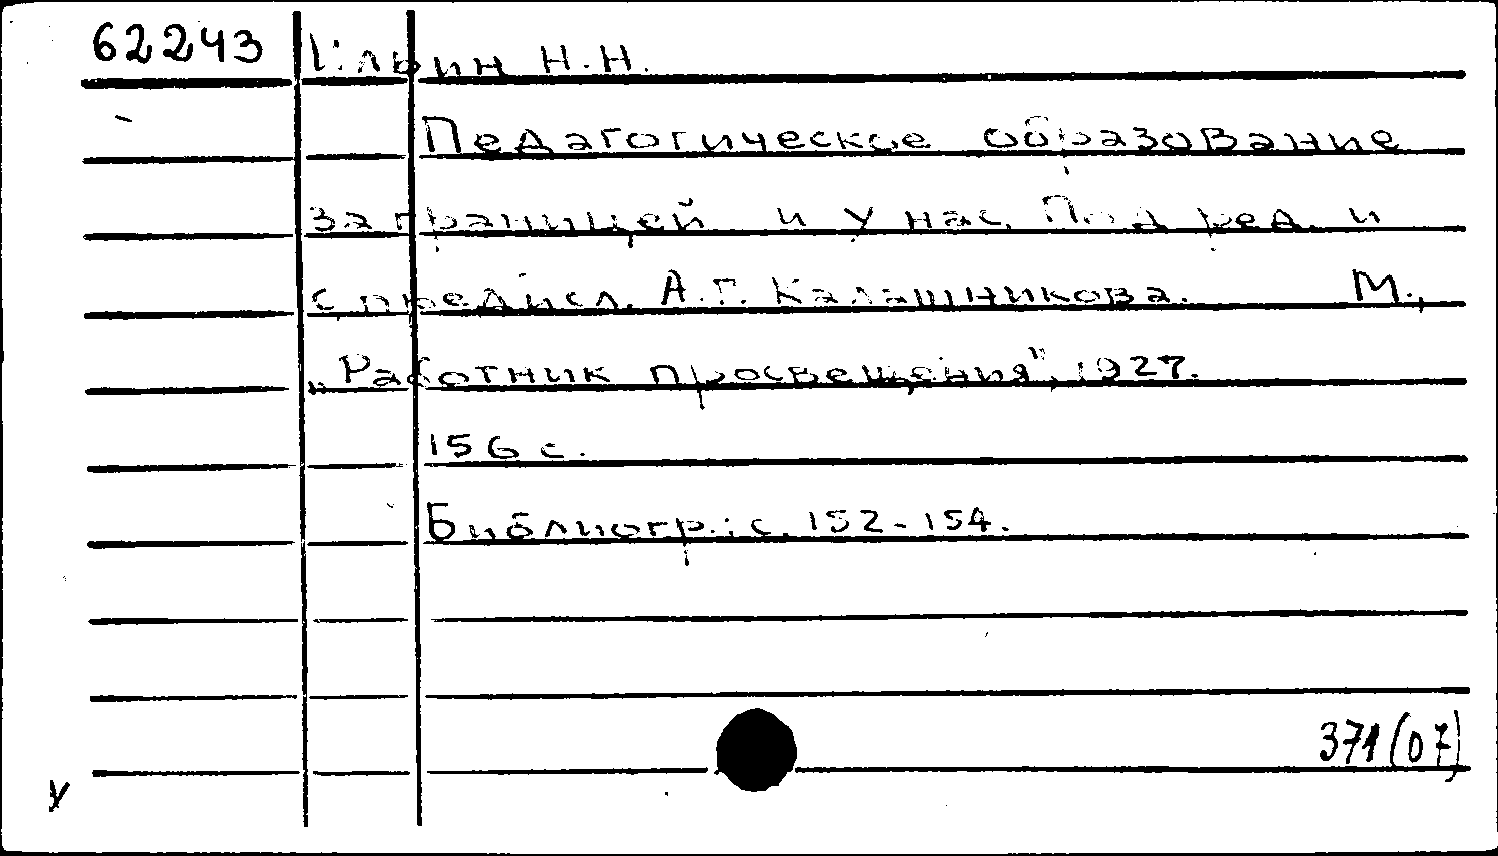 62243 Ильин Н.Н.
Педагогическое образование
за границей и у нас. Под ред. и
с предисл. А.Г. Калашникова. М.,
„Работник просвещения", 1927.
156 с.
Библиогр.: с. 152-154.
371(07)
У